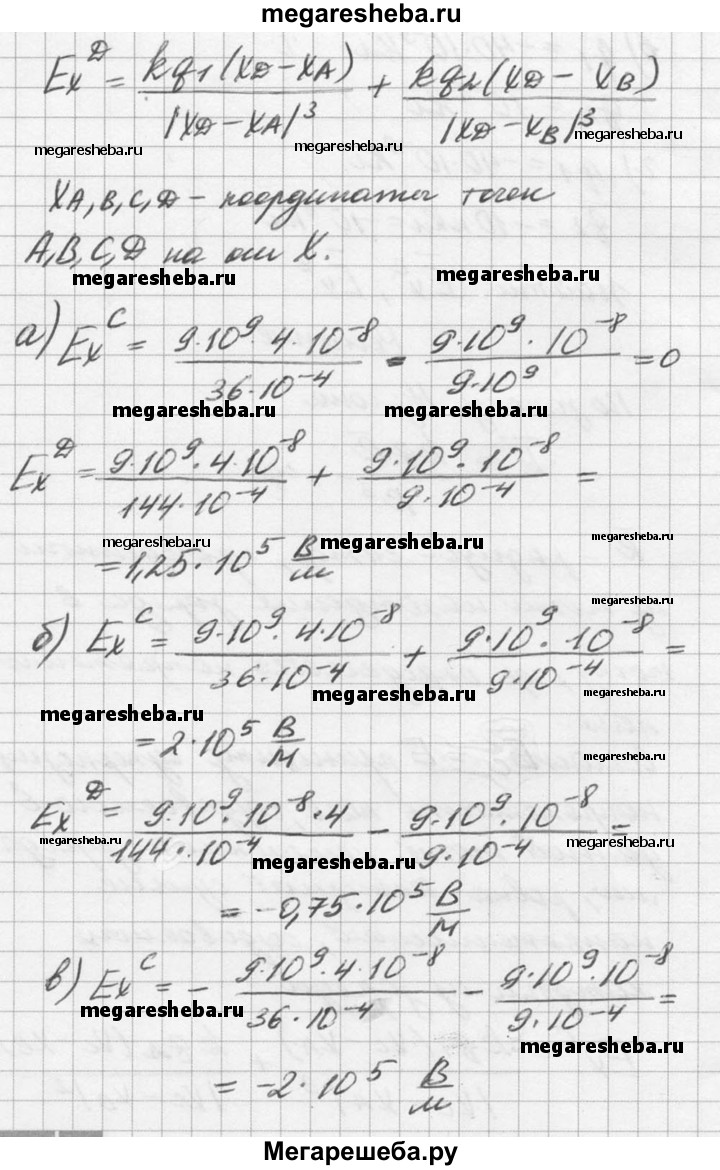 megaresheba.ru
Ex^D = kq1(xD-xA)/|xD-xA|^3 + kq2(xD-xB)/|xD-xB|^3
megaresheba.ru megaresheba.ru megaresheba.ru
XA,B,C,D - координаты точек
A,B,C,D на оси X.
megaresheba.ru megaresheba.ru
а) Ex^C = 9·10^9·4·10^-8/36·10^-4 - 9·10^9·10^-8/9·10^9 = 0
megaresheba.ru megaresheba.ru
Ex^D = 9·10^9·4·10^-8/144·10^-4 + 9·10^9·10^-8/9·10^-4 =
megaresheba.ru
= 1,25·10^5 В/м
megaresheba.ru megaresheba.ru
megaresheba.ru
б) Ex^C = 9·10^9·4·10^-8/36·10^-4 + 9·10^9·10^-8/9·10^-4 =
megaresheba.ru megaresheba.ru
megaresheba.ru
= 2·10^5 В/м
megaresheba.ru
Ex^D = 9·10^9·10^-8·4/144·10^-4 - 9·10^9·10^-8/9·10^-4 =
megaresheba.ru megaresheba.ru megaresheba.ru
= -0,75·10^5 В/м
в) Ex^C = - 9·10^9·4·10^-8/36·10^-4 - 9·10^9·10^-8/9·10^-4 =
megaresheba.ru megaresheba.ru
= -2·10^5 В/м
Мегарешеба.ру